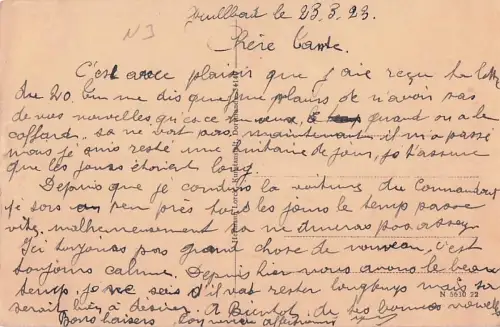 le 23.3.23.
N J
Chère Tante.
C'est avec plaisir que j'aie reçu ta lettre
du 20 tu me dis que je me plains de n'avoir pas
de vos nouvelles, qu'est ce quand on a le
caffard, sa ne vart pas, maintenant il m'a passé
mais je suis resté une huitaine de jour, je t'assure
que les jours étaient long.
Depuis que je conduis la voiture du Commandant
je sors un peu près tous les jours le temps passe
vite, malheureusement sa ne durera pas assez
Ici toujours pas grand chose de nouveau, c'est
toujours calme. Depuis hier nous avons le beau
temp. je ne sais s'il vat rester longtemps mais sa
serait bien à désirer. A Bientôt de tes bonnes nouvelles
Bons baisers ton neveu affectionné
N 5616 22